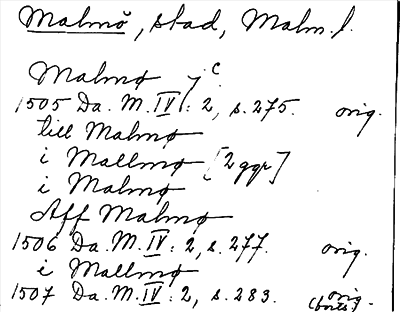 Malmö, stad, Malm. l.
Malmø
1505 Da. M. IV: 2, s. 275. orig.
till Malmø
i Mallmø [2 ggr]
i Malmø
Aff Malmø
1506 Da. M. IV: 2, s. 277. orig.
i Mallmø
1507 Da. M. IV: 2, s. 283. orig.